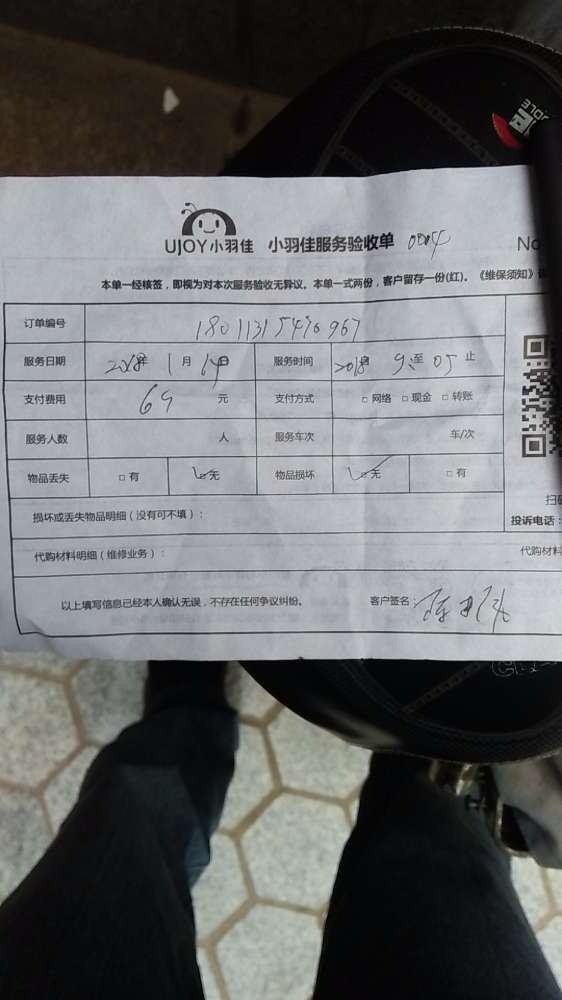 UJOY小羽佳 小羽佳服务验收单 0004 No
本单一经核签，即视为对本次服务验收无异议。本单一式两份，客户留存一份(红)。《维保须知》
订单编号
服务日期 2018年 1月 14日 服务时间 2018 9:至 05止
支付费用 69 元 支付方式 □网络 □现金 □转账
服务人数 人 服务车次 车/次
物品丢失 □有 □无 物品损坏 □无 □有
损坏或丢失物品明细（没有可不填）：
投诉电话：
代购材料明细（维修业务）： 代购材料
以上填写信息已经本人确认无误，不存在任何争议纠纷。 客户签名：